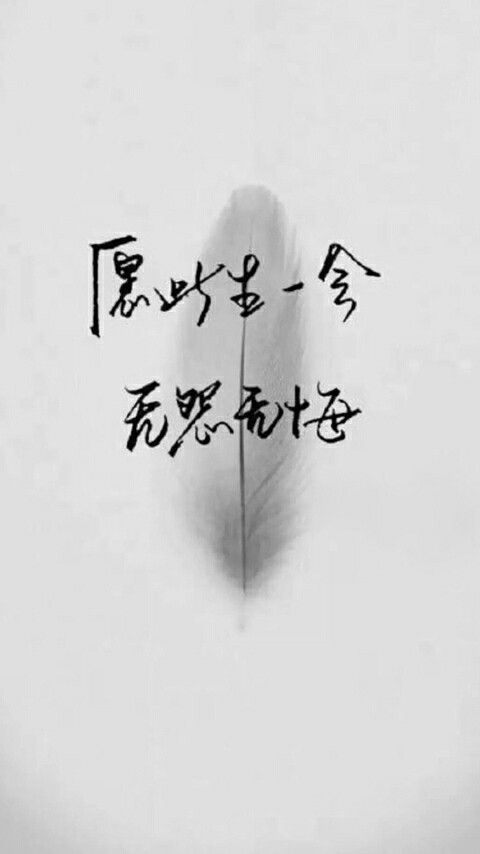 愿此生一会
无怨无悔